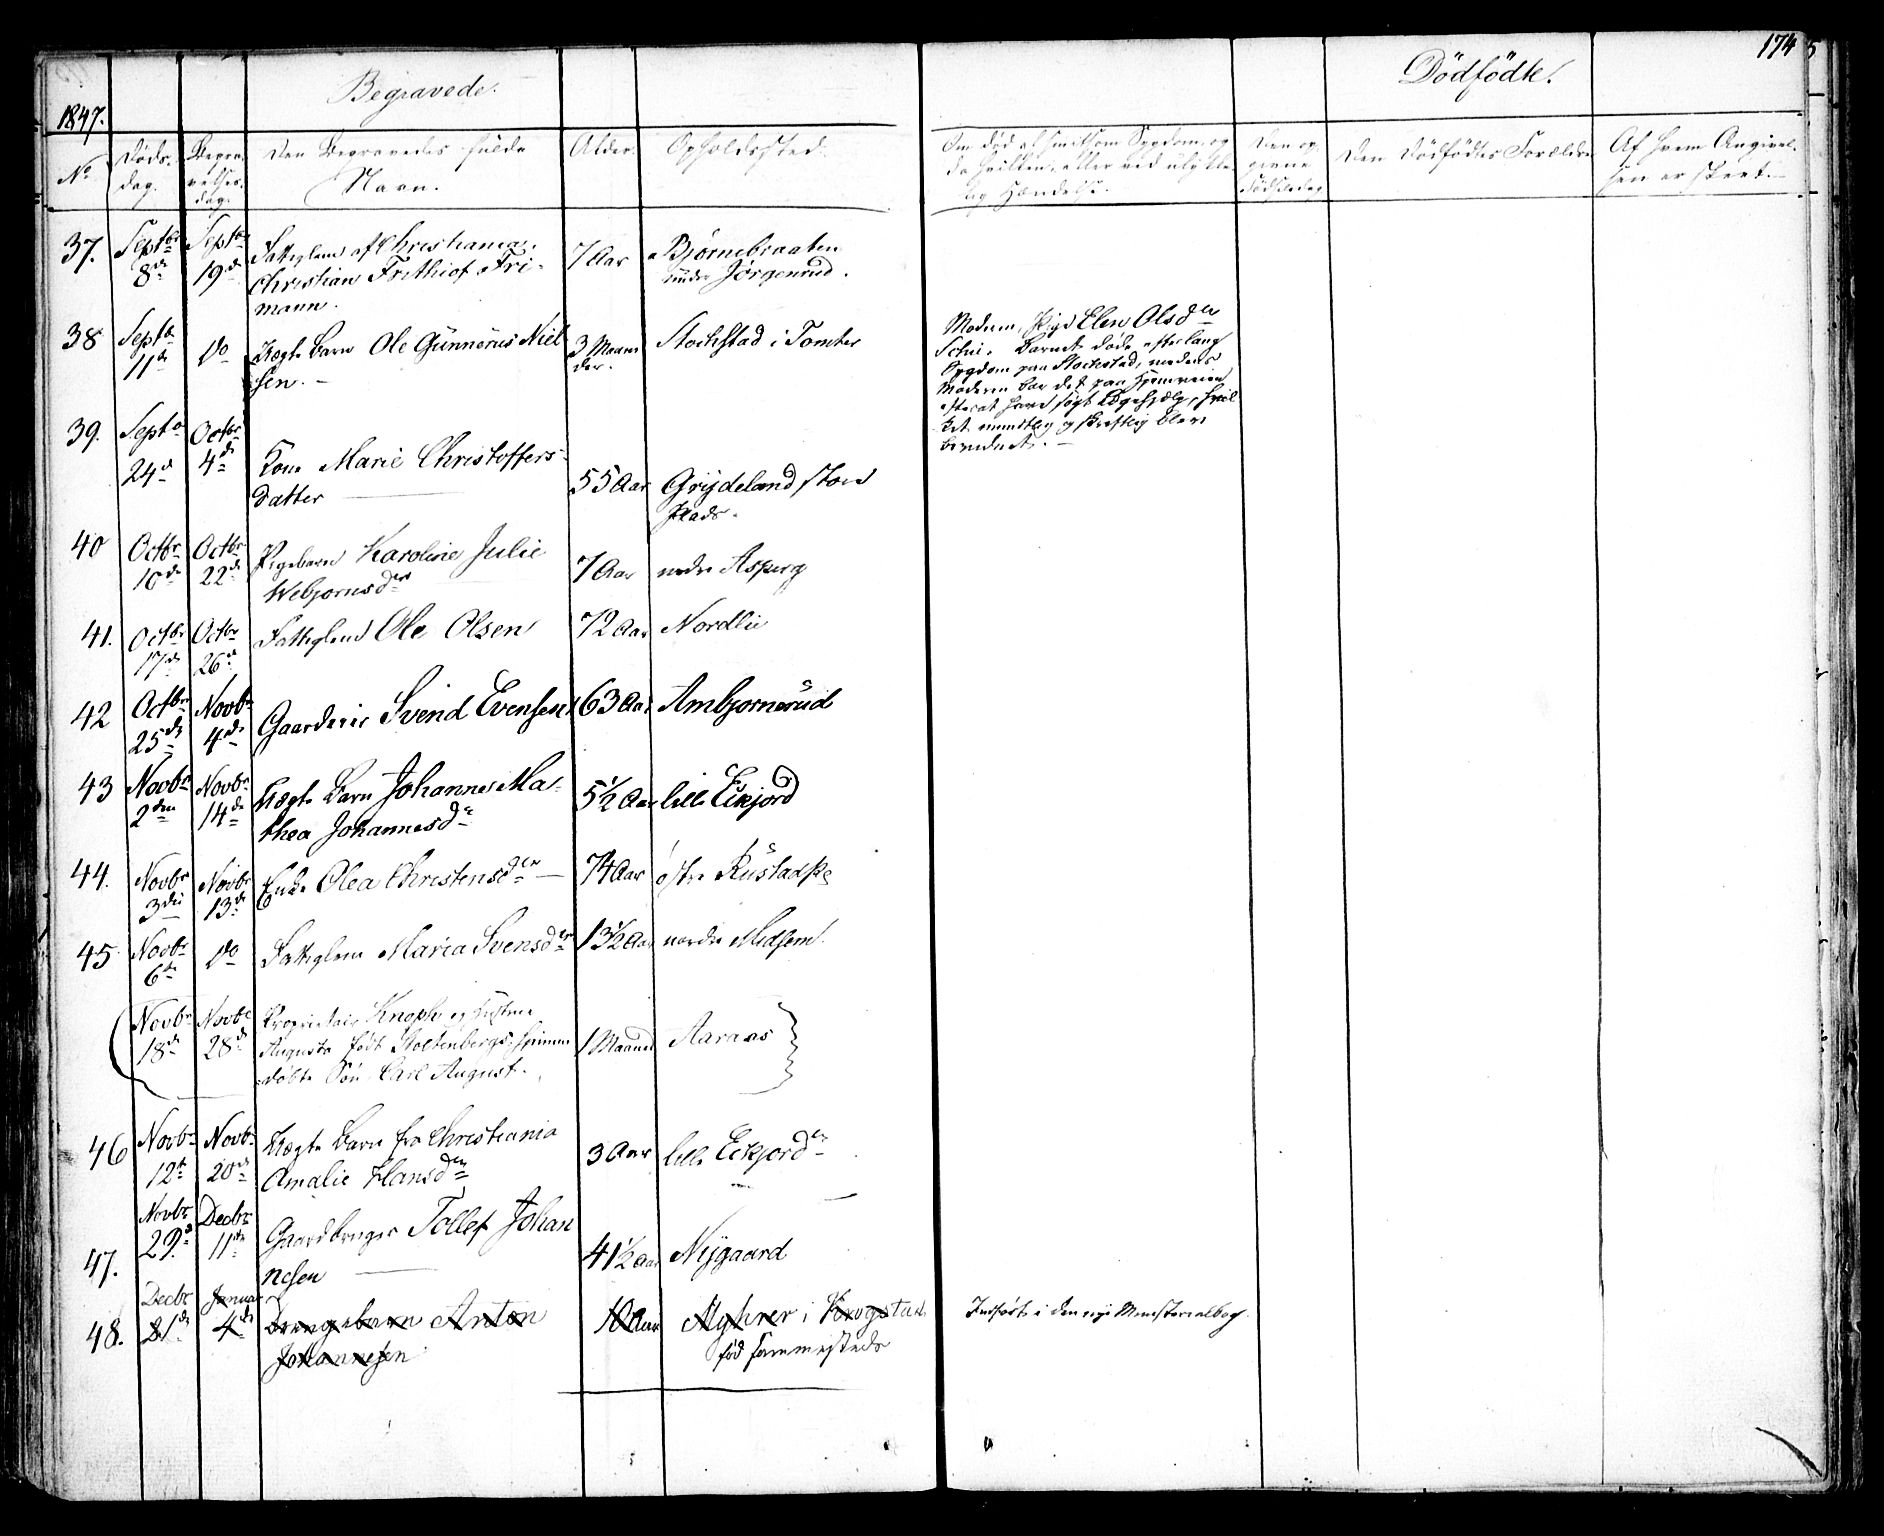 174 5
1847.
Begravede.
Dödfödte.
No
Døds-
dag.
Begra-
velses-
dag.
Den Begravedes fulde
Navn.
Alder.
Opholdssted.
Om død af smitsom Sygdom, og
da hvilken, eller ved ulykke-
lig Hændelse.
Den op-
givne
Fødselsdag
Den Dödfödtes Forældre
Af hvem Angivel-
sen er skeet.
37. Septbr 8de Septbr 19de
Fattiglem af Christiania,
Christian Frithiof Fri-
mann.
7 Aar
Bjørnebraaten
under Jørgenrud.
38 Septbr 11te Do
Uægte Barn Ole Gunnerus Niel
sen. -
3 Maane
der.
Stochstad i Tomter
Moderen, Pige Elen Olsdr
Barnet døde efter lang
Sygdom paa Stochstad, medens
Moderen bar det paa Hjemveien
efterat have søgt Lægehjælp, hvil
ket mundtlig og skriftlig blev
bevidnet. -
39. Septbr 24de Octbr 4de
Kone Marie Christoffers-
datter
55 Aar
Grydeland
Plads.
40 Octbr 10de Octbr 22de
Pigebarn Karoline Julie
Webjørnsdr
7 Aar
nedre Asperg
41. Octbr 17de Octbr 26de
Fattiglem Ole Olsen
72 Aar
Nordlie
42 Octbr 25de Novbr 4de
Gaardeier Svend Evensen
63 Aar
Ambjørnerud
43 Novbr 2den Novbr 14de
Uægte Barn Johanne Ma-
thea Johannesdr
5½ Aar
lille Eikjord
44. Novbr 3die Novbr 13de
Enke Olea Christensdr
74 Aar
østre Rustad
45 Novbr 6te Do
Fattiglem Maria Svensdr
13½ Aar
nordre Midsem.
Novbr 18de Novbr 28de
Proprietair Knoph og Hustrue
Augusta født Stoltenbergs, hjemme
døbte Søn, Carl August.
1 Maaned
Aaraas
46 Novbr 12te Novbr 20de
Uægte Barn fra Christiania
Amalie Hansdr
3 Aar
lille Eikjord
47. Novbr 29de Decbr 11te
Gaardbruger Tollef Johan
nesen
41½ Aar
Nygaard
48. Decbr 21de Januar 4de
Drengebarn Anton
Johannesen
10 Aar
i Krogstad
fød sammesteds
Indført i den nye Ministerialbog.